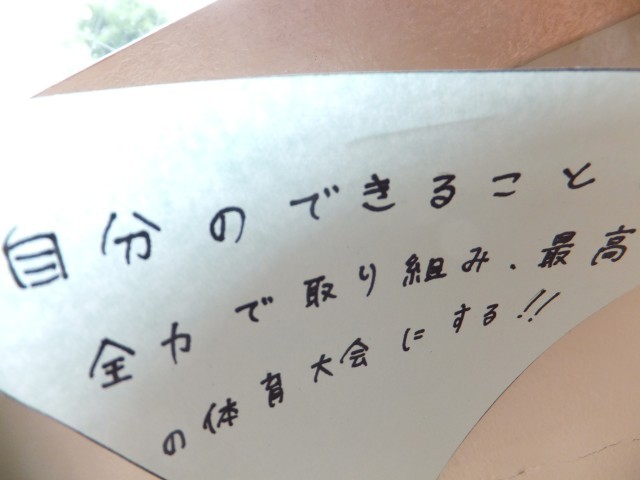 自分のできること
全力で取り組み、最高
の体育大会にする!!